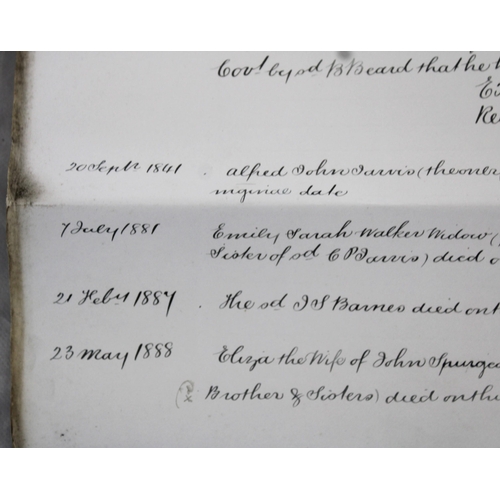 Covt by sd B Beard that he
20 Septr 1841 . Alfred John Jarvis (the
date
7 July 1881 Emily Sarah Walker Widow (
Sister of sd C P Jarvis) died
21 Feby 1887 . The sd J S Barnes died on
23 May 1888 Eliza the Wife of John
Brother & Sisters) died on